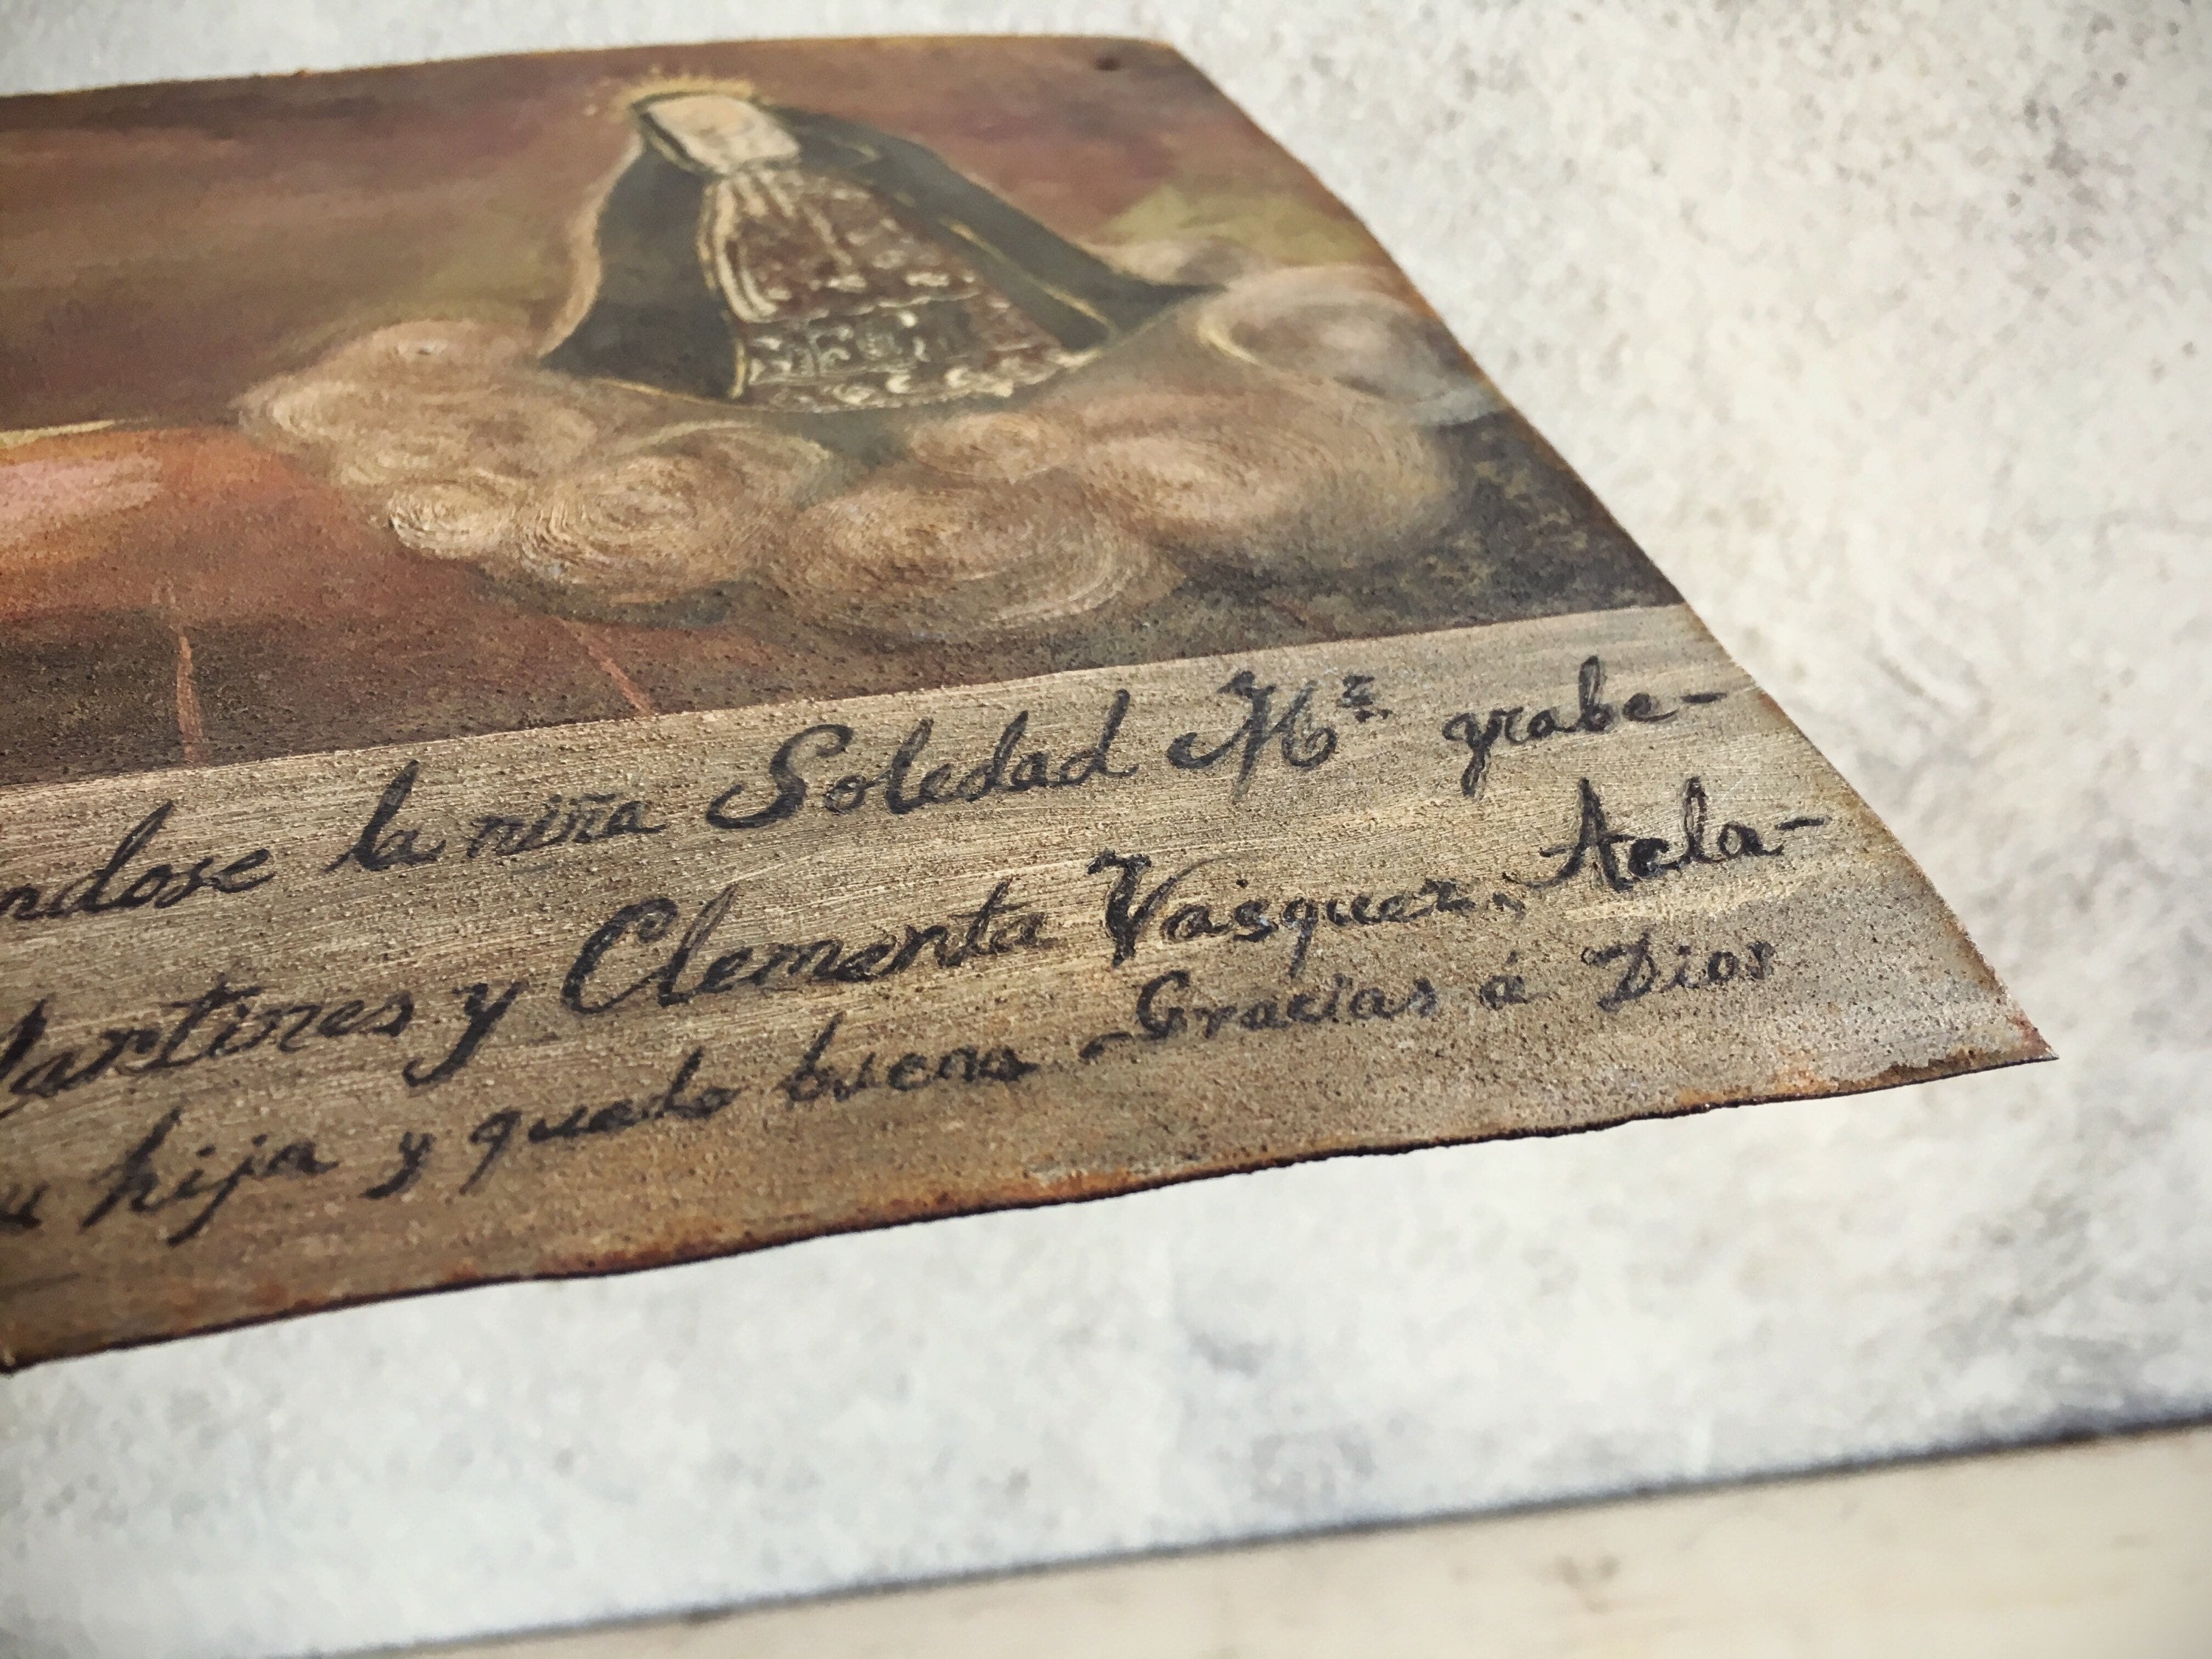 ndose la niña Soledad Mz grabe-
artines y Clementa Vasquez, Acla-
u hija y quedo buena - Gracias á Dios